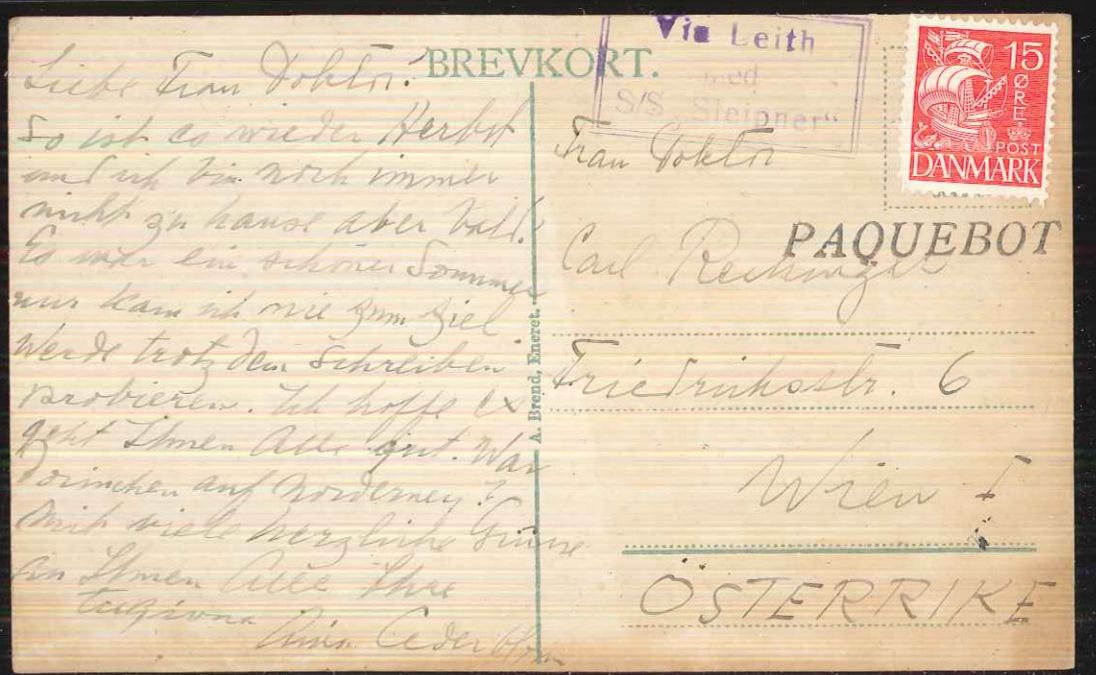 BREVKORT.
Via Leith
med
S/S „Sleipner“
15
ØRE
POST
DANMARK
PAQUEBOT
Liebe Frau Doktor!
So ist es wieder Herbst
und ich bin noch immer
nicht zu hause aber bald.
Es war ein schöner Sommer
nur kam ich nie zum Ziel
werde trotzdem schreiben
probieren. Ich hoffe es
geht Ihnen Alle gut. War
auf Norderney?
Mit viele herzliche Grüsse
an Ihnen Alle Ihre
Ceder
A. Brend, Eneret.
Frau Doktor
Carl Rechinger
Friedrichsstr. 6
Wien I
ÖSTERRIKE